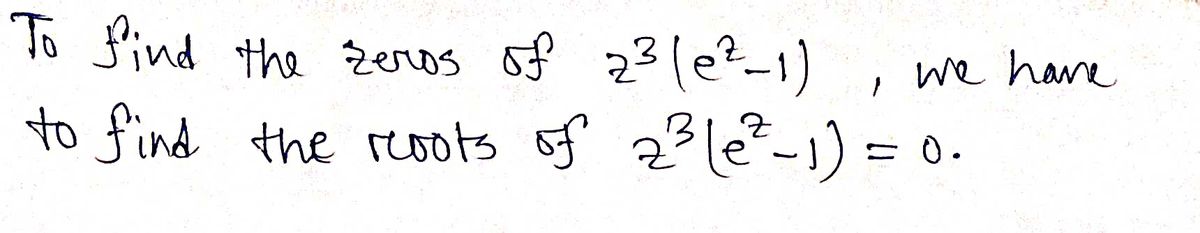 To find the zeros of z³(e^z-1), we have
to find the roots of z³(e^z-1) = 0.